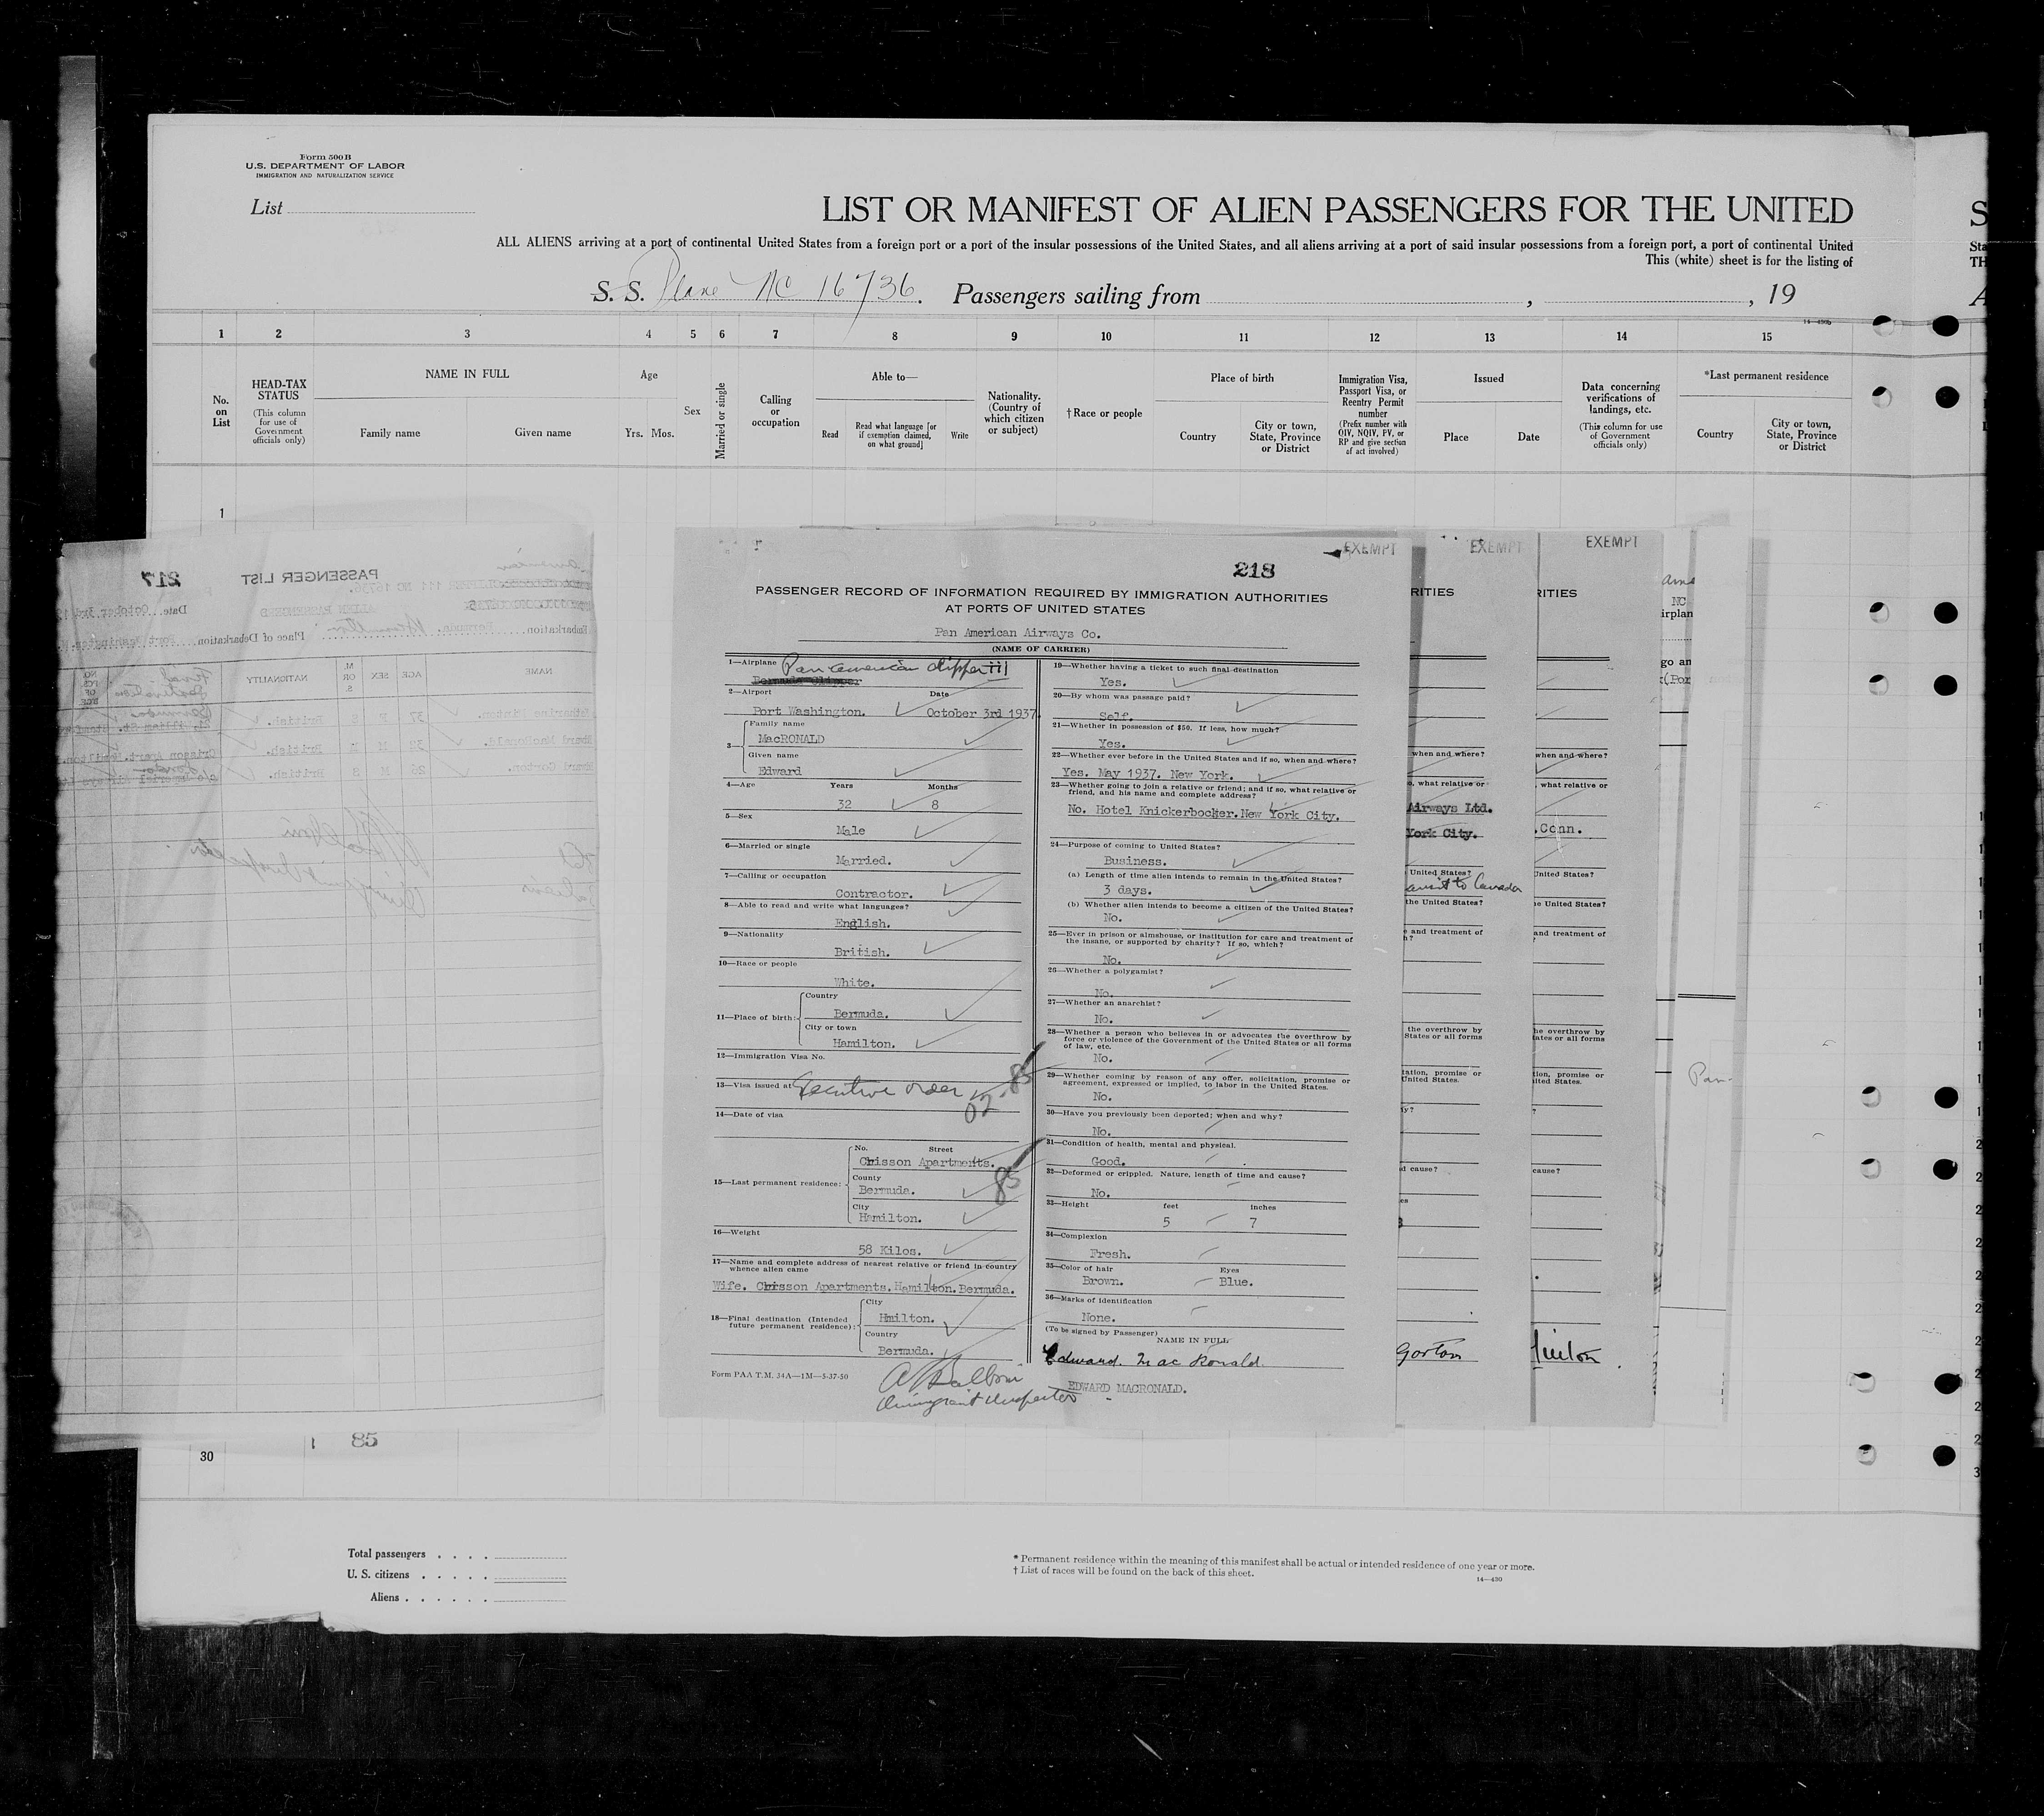 Form 500B
U.S. DEPARTMENT OF LABOR
IMMIGRATION AND NATURALIZATION SERVICE
List
LIST OR MANIFEST OF ALIEN PASSENGERS FOR THE UNITED
S
ALL ALIENS arriving at a port of continental United States from a foreign port or a port of the insular possessions of the United States, and all aliens arriving at a port of said insular possessions from a foreign port, a port of continental United
Sta
This (white) sheet is for the listing of
TH
S. S. Plane NC 16736. Passengers sailing from , , 19
A
14—430b
1 2 3 4 5 6 7 8 9 10 11 12 13 14 15
No. on List
HEAD-TAX STATUS
(This column for use of Government officials only)
NAME IN FULL
Family name
Given name
Age
Yrs. Mos.
Sex
Married or single
Calling or occupation
Able to—
Read
Read what language [or if exemption claimed, on what ground]
Write
Nationality. (Country of which citizen or subject)
†Race or people
Place of birth
Country
City or town, State, Province or District
Immigration Visa, Passport Visa, or Reentry Permit number
(Prefix number with QIV, NQIV, PV, or RP and give section of act involved)
Issued
Place
Date
Data concerning verifications of landings, etc.
(This column for use of Government officials only)
*Last permanent residence
Country
City or town, State, Province or District
1
217
PASSENGER LIST
Date October 3rd
NC 16736.
ALIEN PASSENGERS
Embarkation Bermuda. Hamilton Place of Debarkation Port Washington.
NAME
AGE
SEX
M. OR S.
NATIONALITY
Final Destination
NO. PCS OF BGE
Katharine Linton. 37 F S British.
William St.
MacRonald. 32 M M British.
Crisson Apart. Hamilton.
Gorton. 26 M S British.
London
c/o Imperial Airways
218
EXEMPT
PASSENGER RECORD OF INFORMATION REQUIRED BY IMMIGRATION AUTHORITIES
AT PORTS OF UNITED STATES
Pan American Airways Co.
(NAME OF CARRIER)
1—Airplane Pan American Clipper iii
Bermuda Clipper
2—Airport Date
Port Washington. October 3rd 1937.
3— Family name
MacRONALD
Given name
Edward
4—Age Years Months
32 8
5—Sex
Male
6—Married or single
Married.
7—Calling or occupation
Contractor.
8—Able to read and write what languages?
English.
9—Nationality
British.
10—Race or people
White.
11—Place of birth: Country
Bermuda.
City or town
Hamilton.
12—Immigration Visa No.
13—Visa issued at Executive order
02-85
14—Date of visa
15—Last permanent residence: No. Street
Crisson Apartments.
County
Bermuda.
City
Hamilton.
85
16—Weight
58 Kilos.
17—Name and complete address of nearest relative or friend in country
whence alien came
Wife. Crisson Apartments. Hamilton. Bermuda.
18—Final destination (Intended
future permanent residence): City
Hmilton.
Country
Bermuda.
Form PAA T.M. 34A—1M—5-37-50
Immigrant Inspector
19—Whether having a ticket to such final destination
Yes.
20—By whom was passage paid?
Self.
21—Whether in possession of $50. If less, how much?
Yes.
22—Whether ever before in the United States and if so, when and where?
Yes. May 1937. New York.
23—Whether going to join a relative or friend; and if so, what relative or
friend, and his name and complete address?
No. Hotel Knickerbocker.New York City.
24—Purpose of coming to United States?
Business.
(a) Length of time alien intends to remain in the United States?
3 days.
(b) Whether alien intends to become a citizen of the United States?
No.
25—Ever in prison or almshouse, or institution for care and treatment of
the insane, or supported by charity? If so, which?
No.
26—Whether a polygamist?
No.
27—Whether an anarchist?
No.
28—Whether a person who believes in or advocates the overthrow by
force or violence of the Government of the United States or all forms
of law, etc.
No.
29—Whether coming by reason of any offer, solicitation, promise or
agreement, expressed or implied, to labor in the United States.
No.
30—Have you previously been deported; when and why?
No.
31—Condition of health, mental and physical.
Good.
32—Deformed or crippled. Nature, length of time and cause?
No.
33—Height feet inches
5 7
34—Complexion
Fresh.
35—Color of hair Eyes
Brown. Blue.
36—Marks of identification
None.
(To be signed by Passenger)
NAME IN FULL
Edward. Mac Ronald.
EDWARD MACRONALD.
EXEMPT
RITIES
when and where?
o, what relative or
Airways Ltd.
York City.
United States?
transit to Canada
the United States?
e and treatment of
h?
the overthrow by
States or all forms
tation, promise or
United States.
y?
d cause?
es
Gorton
EXEMPT
RITIES
when and where?
, what relative or
.Conn.
United States?
he United States?
and treatment of
?
he overthrow by
tates or all forms
tion, promise or
ited States.
?
cause?
Linton
NC
irplan
go an
k(Por
Pan-
85
30
Total passengers
U. S. citizens
Aliens
* Permanent residence within the meaning of this manifest shall be actual or intended residence of one year or more.
† List of races will be found on the back of this sheet.
14—430